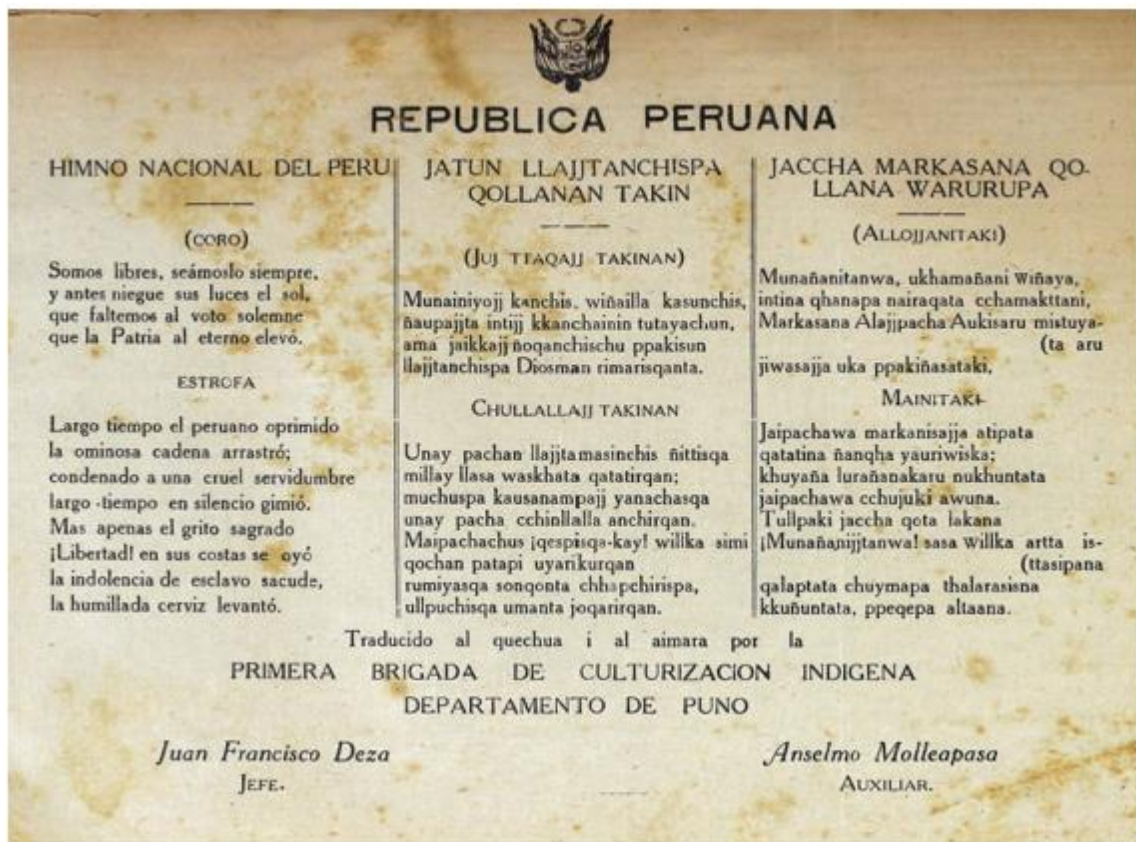 REPUBLICA PERUANA
HIMNO NACIONAL DEL PERU
(CORO)
Somos libres, seámoslo siempre,
y antes niegue sus luces el sol,
que faltemos al voto solemne
que la Patria al eterno elevó.
ESTROFA
Largo tiempo el peruano oprimido
la ominosa cadena arrastró;
condenado a una cruel servidumbre
largo tiempo en silencio gimió.
Mas apenas el grito sagrado
¡Libertad! en sus costas se oyó
la indolencia de esclavo sacude,
la humillada cerviz levantó.
JATUN LLAJJTANCHISPA
QOLLANAN TAKIN
(JUJ TTAQAJJ TAKINAN)
Munainiyojj kanchis. wiñailla kasunchis,
ñaupajjta intijj kkanchainin tutayachun,
ama jaikkajj ñoqanchischu ppakisun
llajjtanchispa Diosman rimarisqanta.
CHULLALLAJJ TAKINAN
Unay pachan llajjtamasinchis ñittisqa
millay llasa waskhata qatatirqan;
muchuspa kausanampajj yanachasqa
unay pacha cchinllalla anchirqan.
Maipachachus ¡qespisqa-kay! willka simi
qochan patapi uyarikurqan
rumiyasqa sonqonta chhapchirispa,
ullpuchisqa umanta joqarirqan.
JACCHA MARKASANA QO-
LLANA WARURUPA
(ALLOJJANITAKI)
Munañanitanwa, ukhamañani Wiñaya,
intina qhanapa nairaqata cchamakttani,
Markasana Alajjpacha Aukisaru mistuya-
(ta aru
jiwasajja uka ppakiñasataki,
MAINITAKI
Jaipachawa markanisajja atipata
qatatina ñanqha yauriwiska;
khuyaña lurañanakaru nukhuntata
jaipachawa cchujuki awuna.
Tullpaki jaccha qota lakana
¡Munañanijjtanwa! sasa Willka artta is-
(ttasipana
qalaptata chuymapa thalarasisna
kkuñuntata, ppeqepa altaana.
Traducido al quechua i al aimara por la
PRIMERA BRIGADA DE CULTURIZACION INDIGENA
DEPARTAMENTO DE PUNO
Juan Francisco Deza
JEFE.
Anselmo Molleapasa
AUXILIAR.